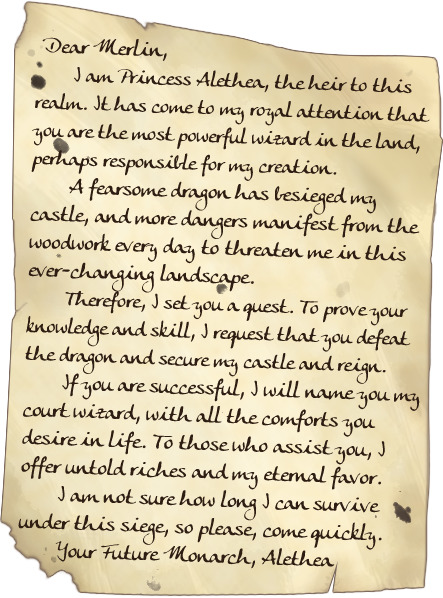 Dear Merlin,
I am Princess Alethea, the heir to this
realm. It has come to my royal attention that
you are the most powerful wizard in the land,
perhaps responsible for my creation.
A fearsome dragon has besieged my
castle, and more dangers manifest from the
woodwork every day to threaten me in this
ever-changing landscape.
Therefore, I set you a quest. To prove your
knowledge and skill, I request that you defeat
the dragon and secure my castle and reign.
If you are successful, I will name you my
court wizard, with all the comforts you
desire in life. To those who assist you, I
offer untold riches and my eternal favor.
I am not sure how long I can survive
under this siege, so please, come quickly.
Your Future Monarch, Alethea